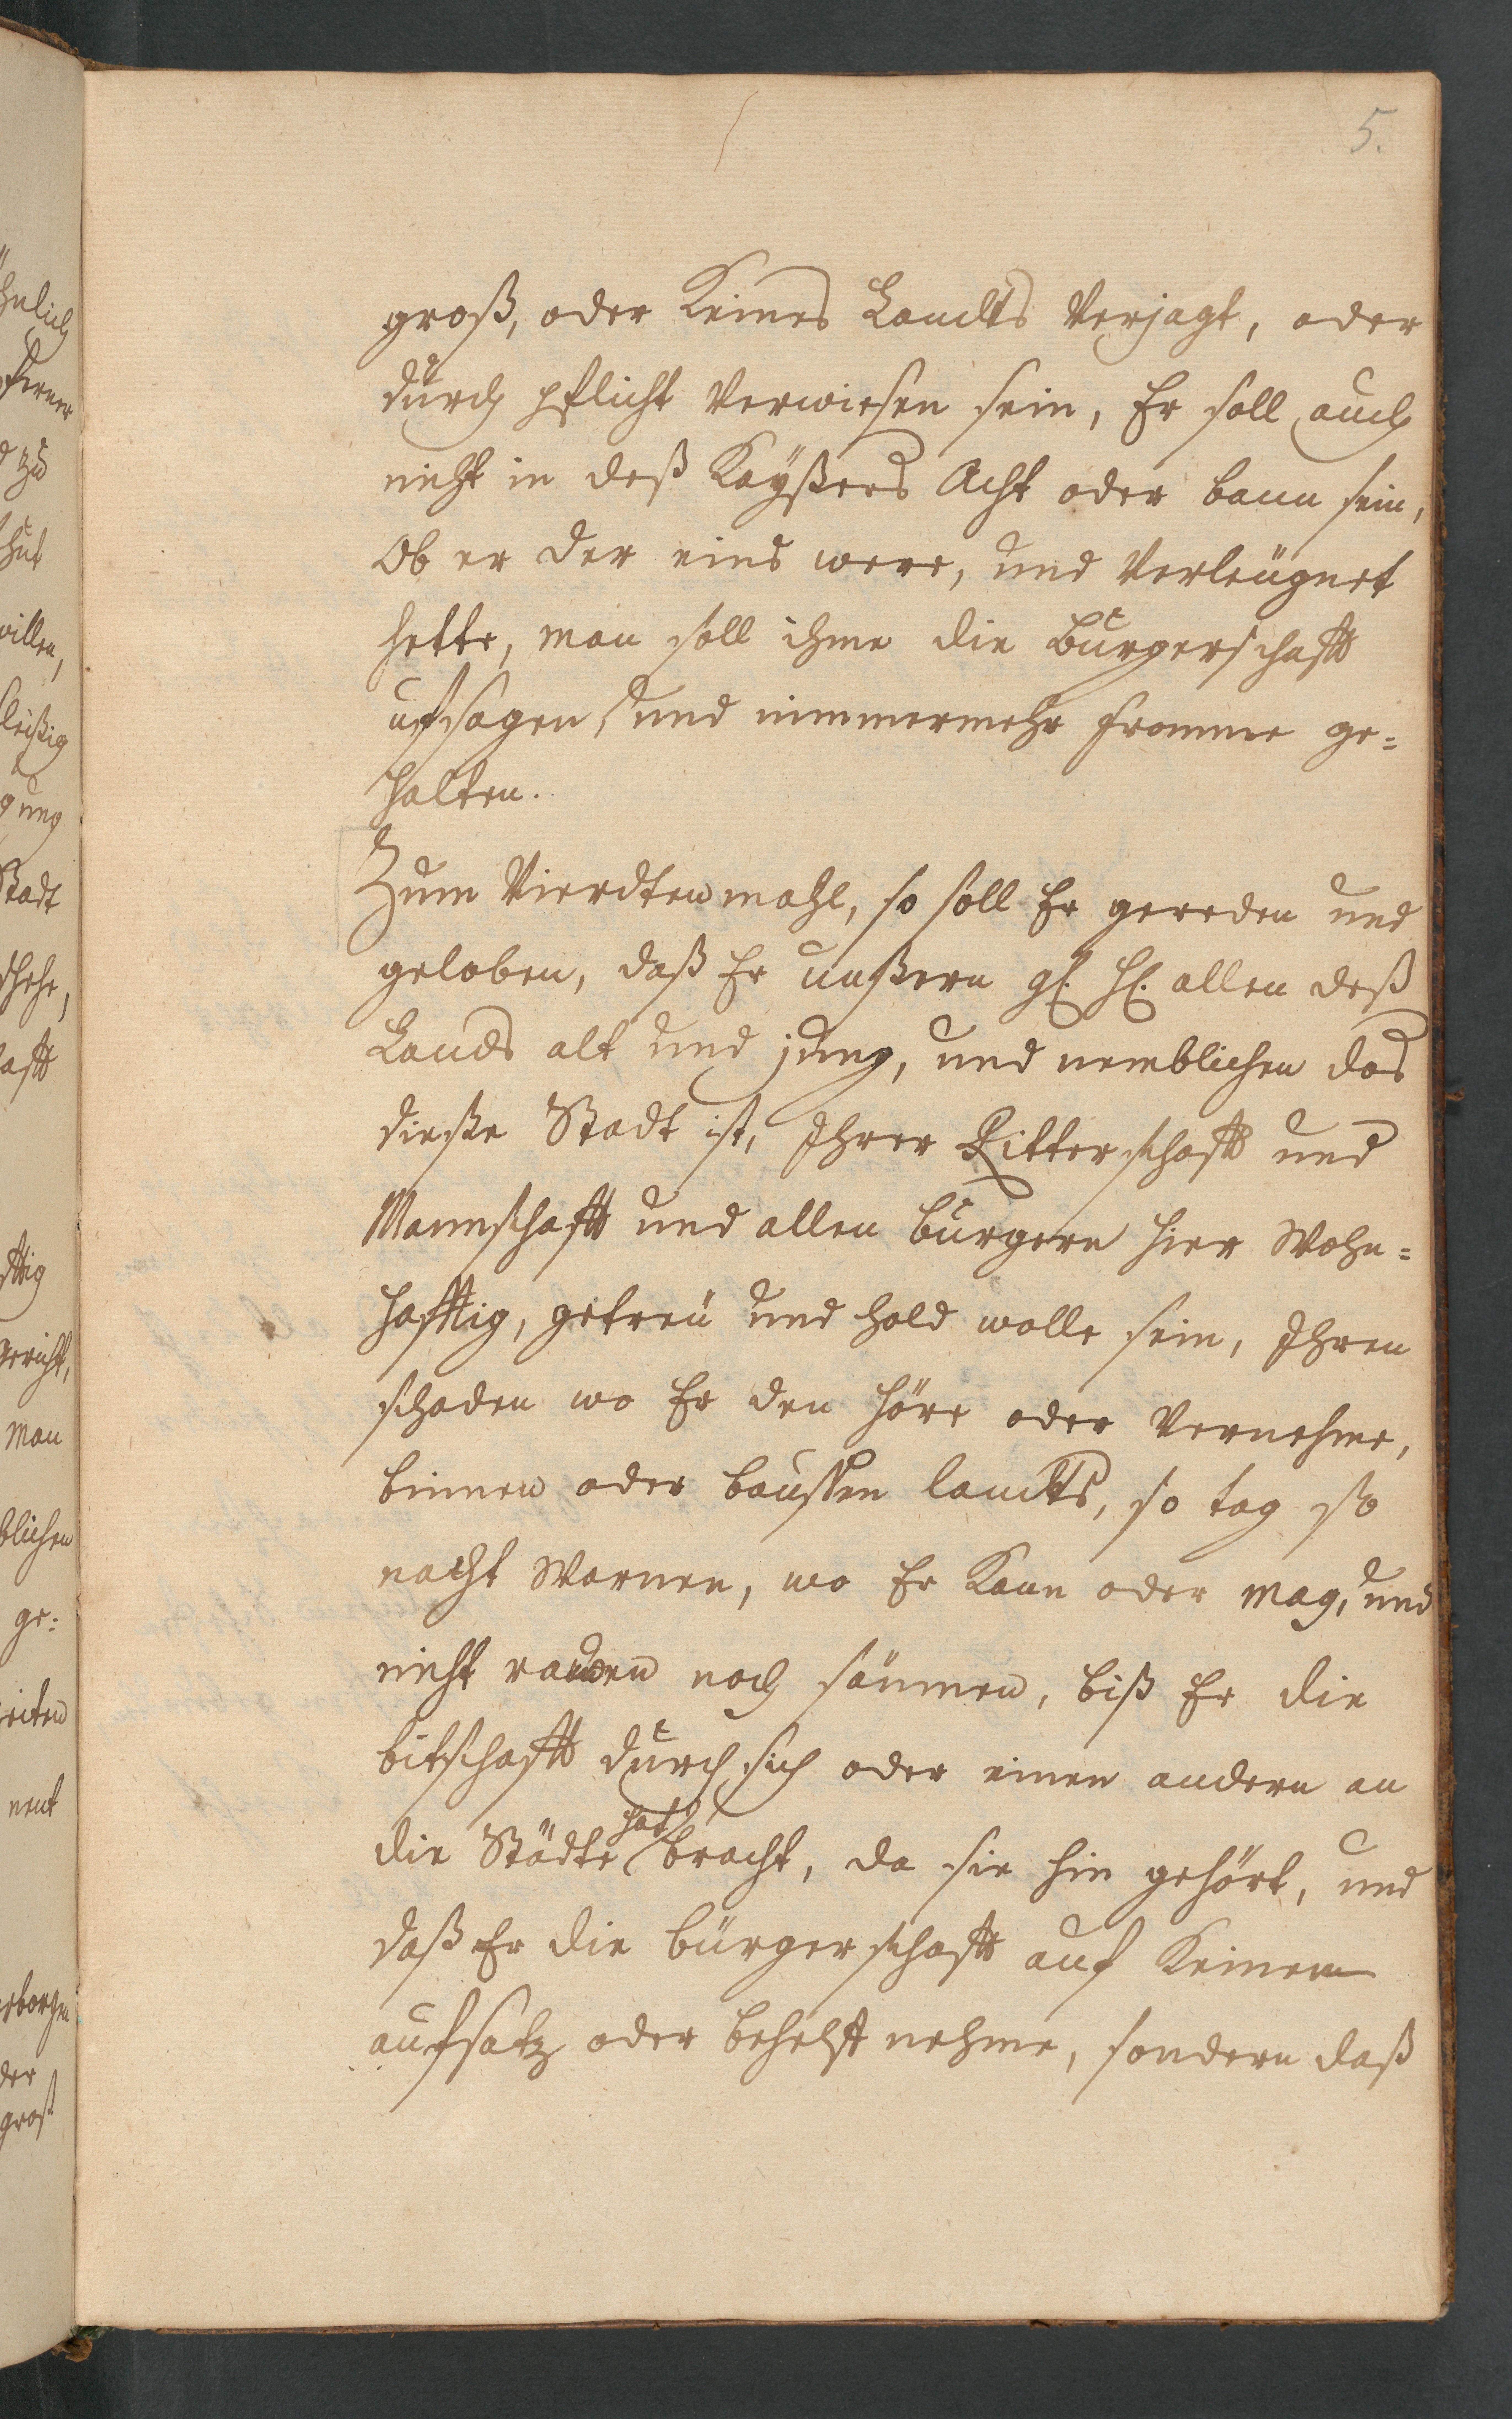 5.
groß, oder Keines Landts Verjagt, oder
durch pflicht Verwiesen sein, Er soll auch
nicht in deß Kaÿßers Acht oder bann sein,
Ob er der eins were, und Verleügnet
hette, man soll ihme die Burgerschafft
ufsagen, und nimmermehr fromme ge=
halten.
Zum Vierdtenmahl, so soll Er gereden und
geloben, daß Er unßern gl. Hl. allen deß
Lands alt und jung, und nemblichen das
dieße Stadt ist, Ihrer Ritterschafft und
Mannschafft und allen burgern hier Wohn=
hafftig, getreü und hold wolle sein, Ihren
schaden wo Er den höre oder Vernehme,
binnen oder baussen landts, so tag so
nacht Warnen, wo Er Kann oder mag, und
nicht noch säumen, biß Er die
bittschafft durch sich oder einen andern an
die Städte hat bracht, da sie hin gehört, und
daß Er die bürgerschafft auf Keinem
aufsatz oder behelff nehme, sondern daß
hnlich
ferner
zu
willen,
leißig
gung
Stadt
schehe,
afft
fftig
gericht,
Man
blichen
ge=
eiten
nent
rborgen
der
groß